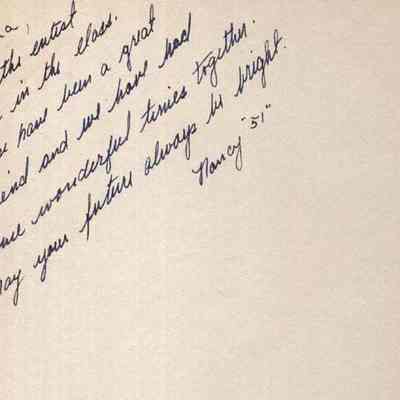 a,
the cutest
in the class.
have been a great
end and we have had
wonderful times together.
ay your future always be bright.
Nancy "51"